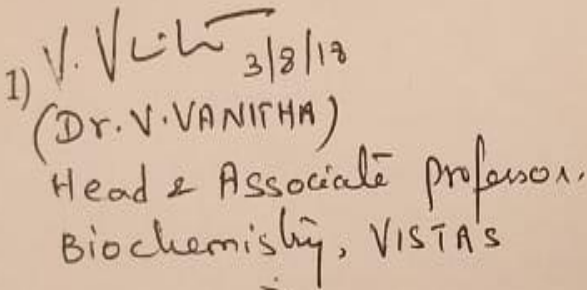 1) V. V 3/8/18
(Dr. V. VANITHA)
Head & Associate professor.
Biochemistry, VISTAS